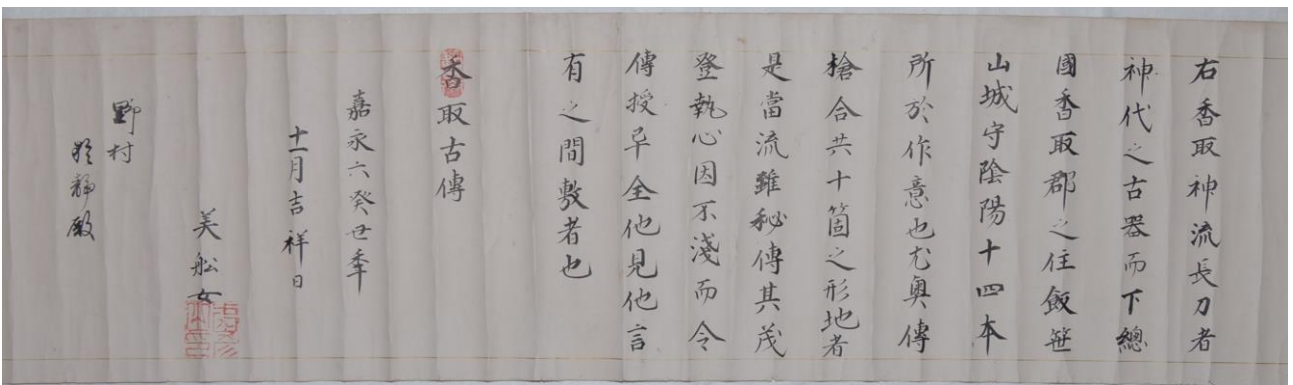 右香取神流長刀者
神代之古器而下總
國香取郡之住飯笹
山城守陰陽十四本
所於作意也尤奥傳
槍合共十箇之形地者
是當流雖秘傳其茂
登執心因不淺而令
傳授早全他見他言
有之間敷者也
香取古傳
嘉永六癸丑年
十一月吉祥日
美舩女
野村
静殿